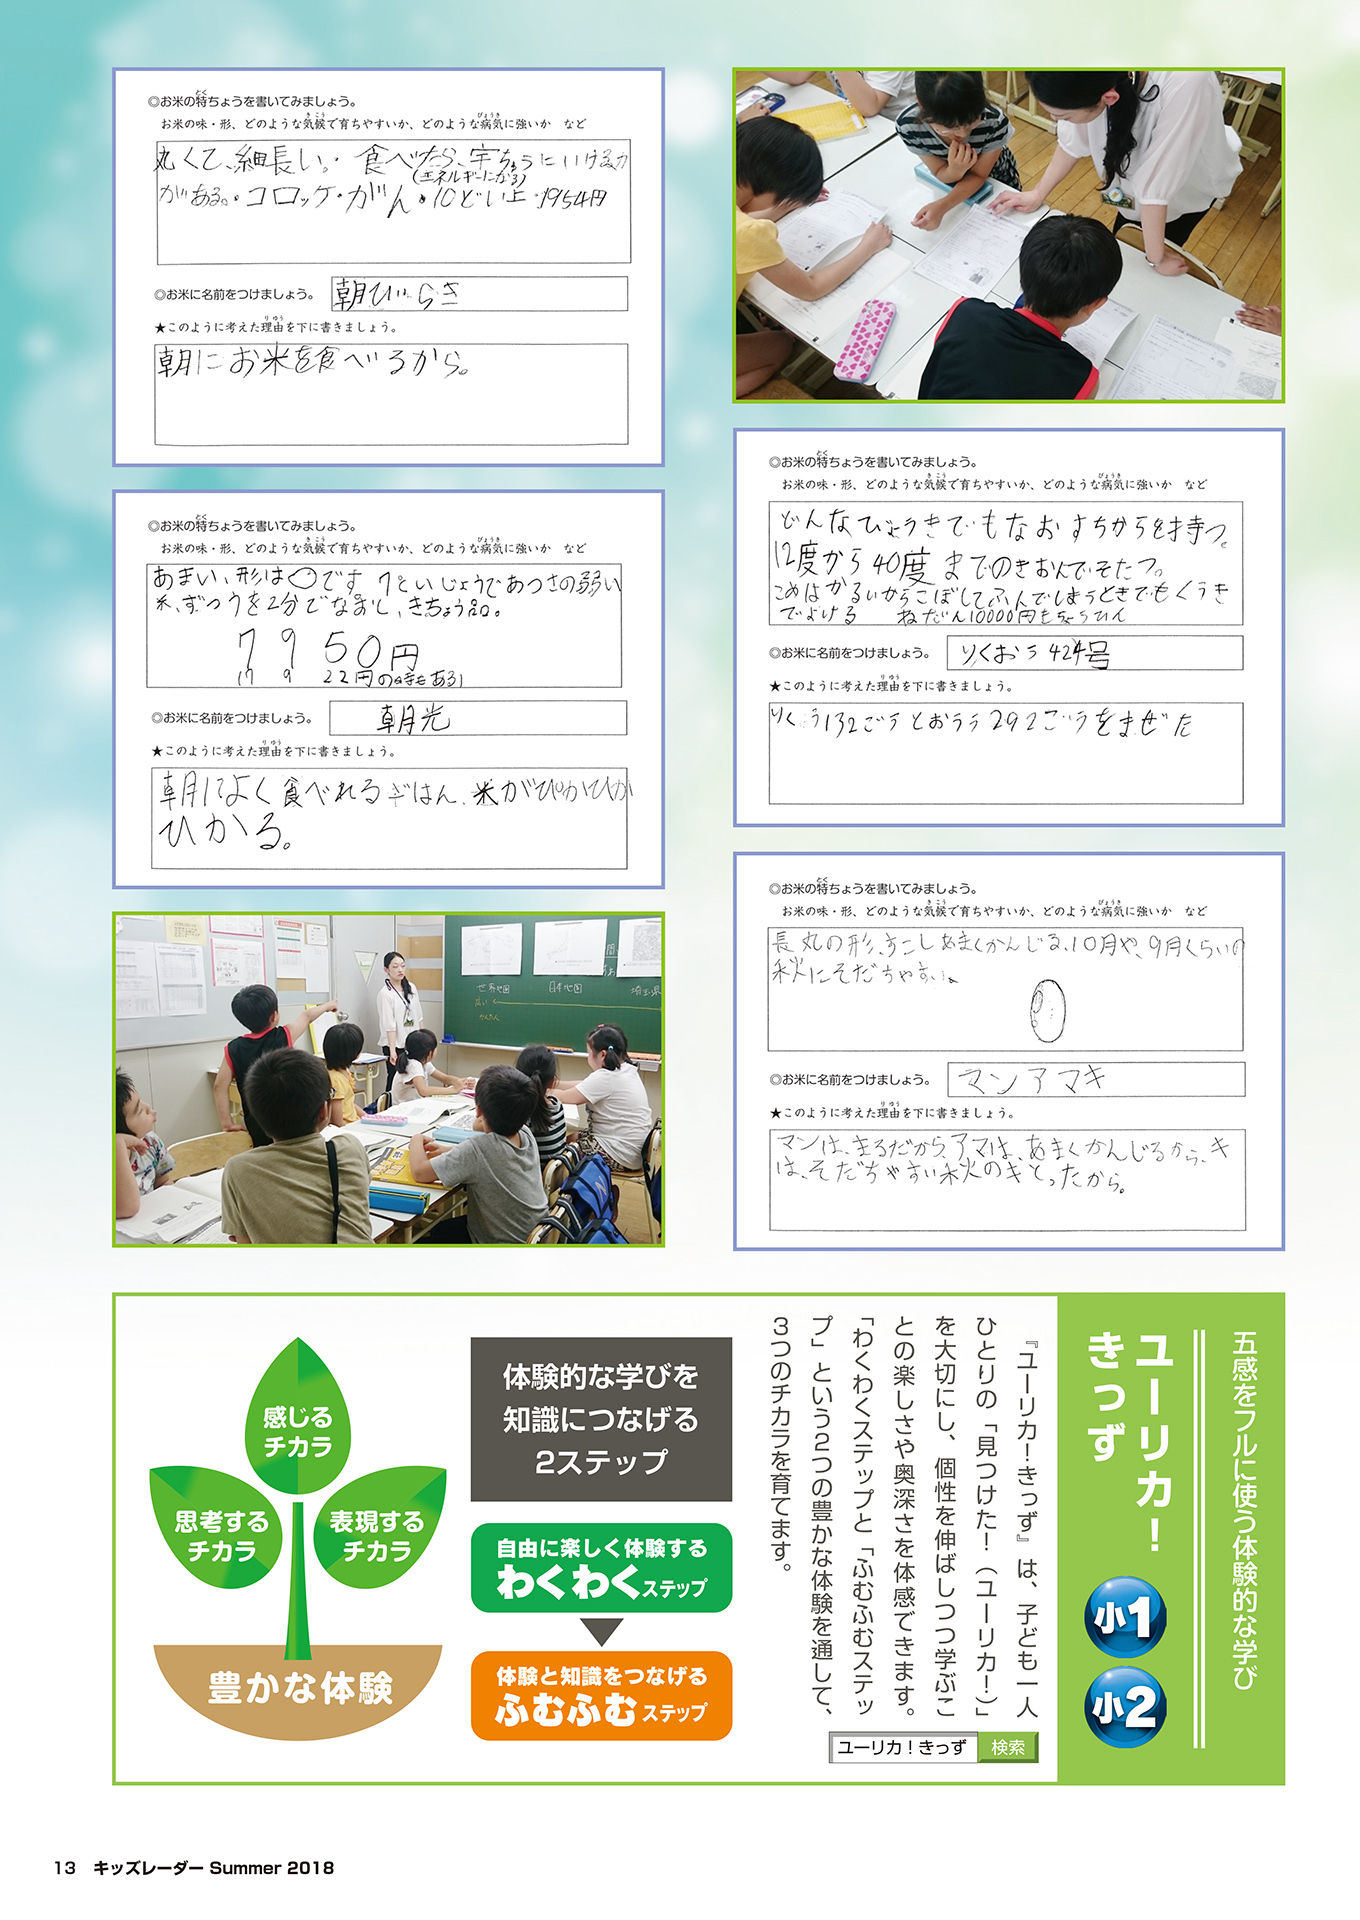 ◎お米の特ちょうを書いてみましょう。
お米の味・形、どのような気候で育ちやすいか、どのような病気に強いか など
丸くて、細長い。・食べたら、宇ちゅうにいける力
(エネルギーになる)
がある。・コロッケ・がん・10どい上・1954円
◎お米に名前をつけましょう。
朝びらき
★このように考えた理由を下に書きましょう。
朝にお米を食べるから。
◎お米の特ちょうを書いてみましょう。
お米の味・形、どのような気候で育ちやすいか、どのような病気に強いか など
あまい、形は です。 であつさの弱い
米、ずつうを2分でなおし、きちょう品。
7950円
22円の時もある
◎お米に名前をつけましょう。
朝光
★このように考えた理由を下に書きましょう。
朝によく食べれるごはん、米がぴかぴか
ひかる。
◎お米の特ちょうを書いてみましょう。
お米の味・形、どのような気候で育ちやすいか、どのような病気に強いか など
どんなびょうきでもなおすちからを持つ。
12度から40度までのきおんでそだつ。
こめはかるいからこぼしてふんでしまうときでもくうき
でよける ねだん10000円もちょうひん
◎お米に名前をつけましょう。
りくおう424号
★このように考えた理由を下に書きましょう。
りくう132ごうとおうう292ごうをまぜた
◎お米の特ちょうを書いてみましょう。
お米の味・形、どのような気候で育ちやすいか、どのような病気に強いか など
長丸の形、すこしあまくかんじる、10月や、9月くらいの
秋にそだちやすい。
◎お米に名前をつけましょう。
マンアマキ
★このように考えた理由を下に書きましょう。
マンは、まるだから、アマは、あまくかんじるから、キ
は、そだちやすい秋のキとったから。
世界地図
日本地図
埼玉県
広い
かんたん
五感をフルに使う体験的な学び
ユーリカ！
きっず
小1
小2
『ユーリカ！きっず』は、子ども一人
ひとりの「見つけた！（ユーリカ！）」
を大切にし、個性を伸ばしつつ学ぶこ
との楽しさや奥深さを体感できます。
「わくわくステップと「ふむふむステッ
プ」という2つの豊かな体験を通して、
3つのチカラを育てます。
ユーリカ！きっず 検索
体験的な学びを
知識につなげる
2ステップ
自由に楽しく体験する
わくわくステップ
体験と知識をつなげる
ふむふむステップ
感じる
チカラ
思考する
チカラ
表現する
チカラ
豊かな体験
13 キッズレーダー Summer 2018